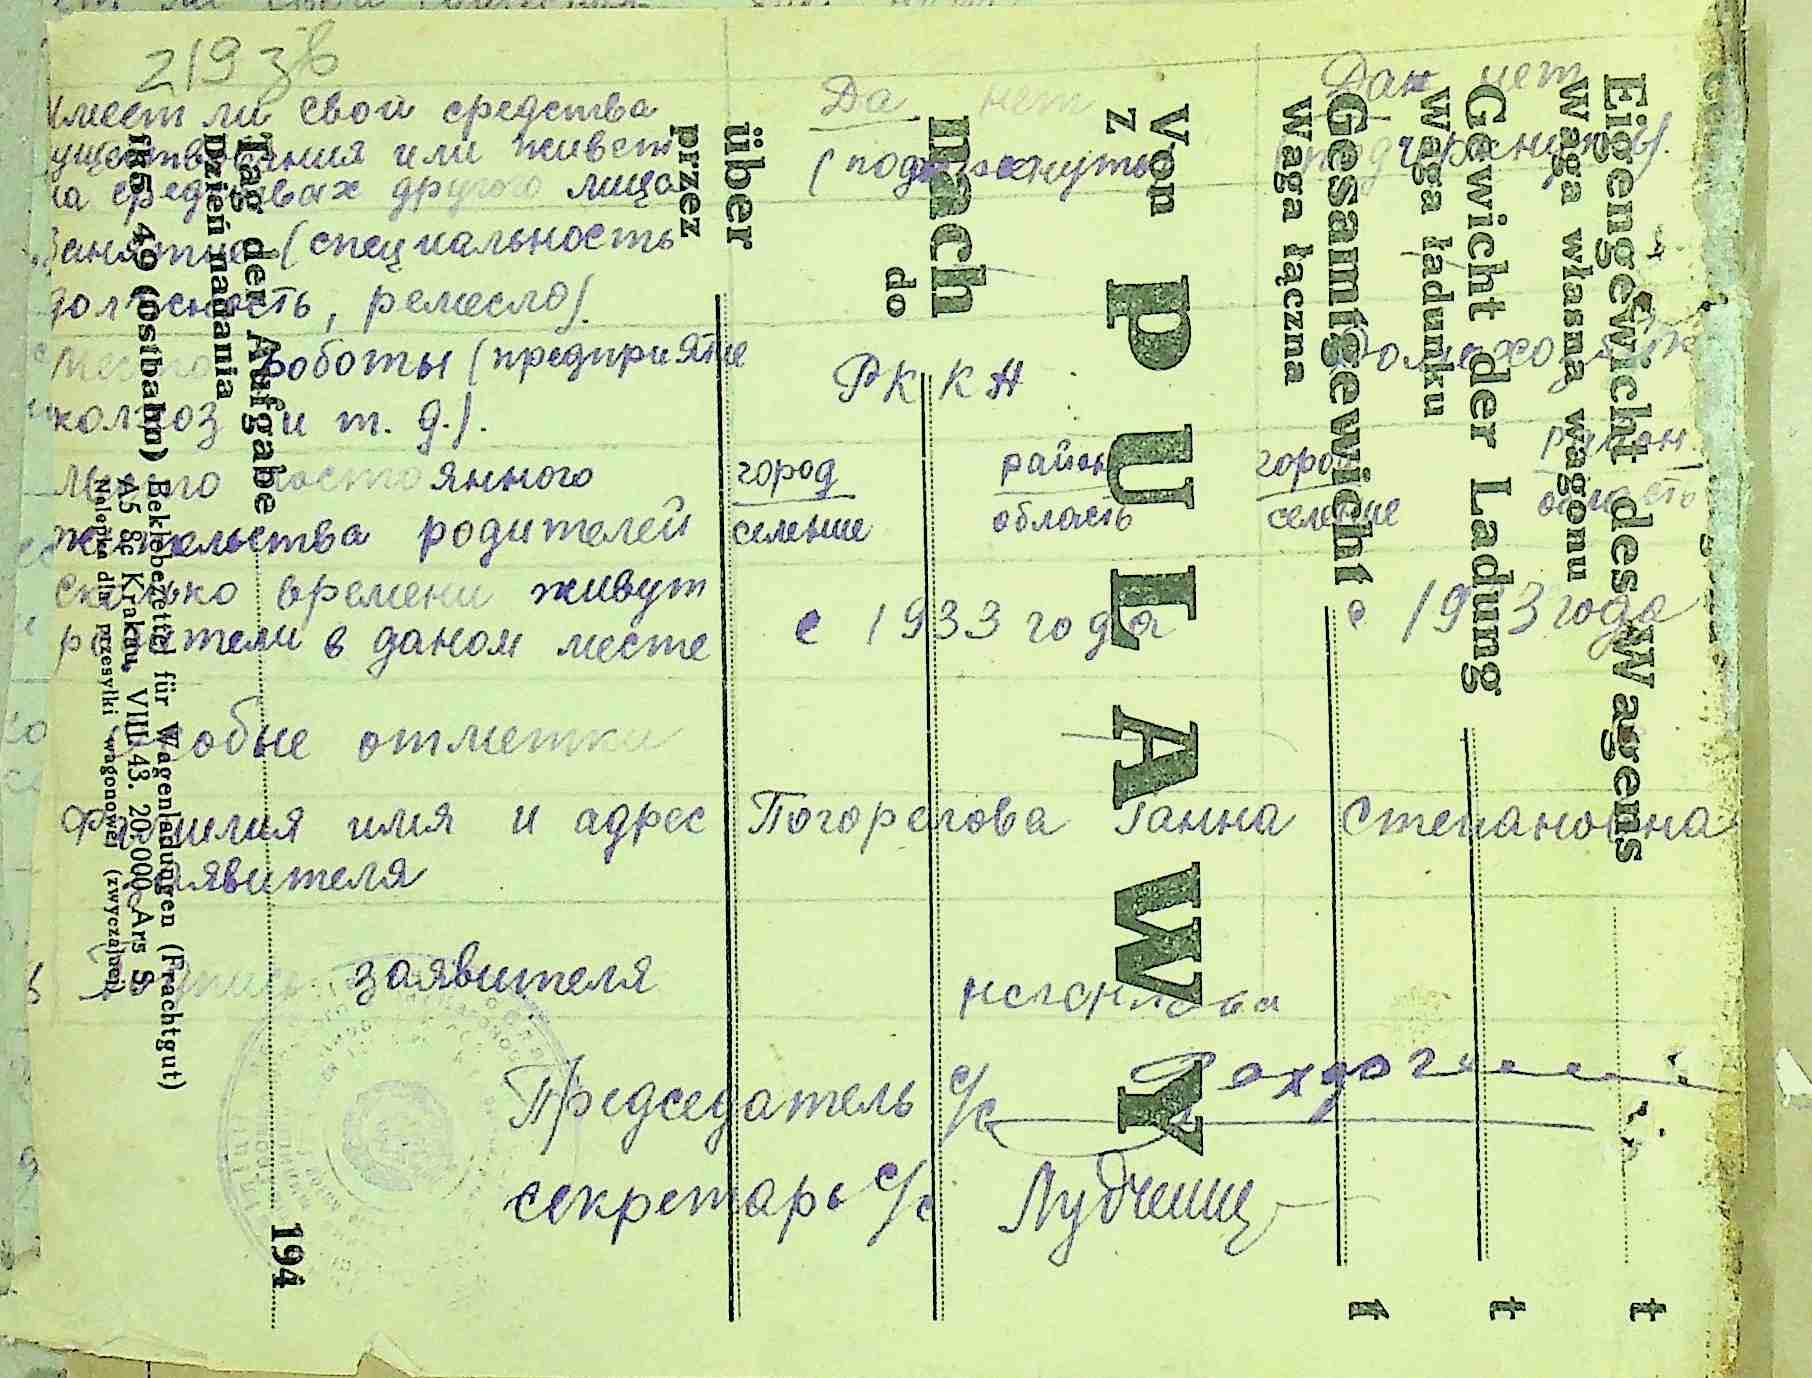 219 зв
Имеет ли свои средства Да нет Да нет
существования или живет (подчеркнуть (подчеркнуть).
на средствах другого лица
Занятие (специальность
должность, ремесло).
Место роботы (предприятие РККА Домохозяйка
колхоз и т. д.).
Место постоянного город район город район
жительства родителей селение область селение область
Сколько времени живут
родители в даном месте с 1933 года с 1933 года
Особые отметки
Фамилия имя и адрес Погорелова Ганна Степановна
заявителя
Подпись заявителя
Председатель с/с
секретарь с/с
Eigengewicht des Wagens t
Waga własna wagonu
Gewicht der Ladung t
Waga ładunku
Gesamtgewicht t
Waga łączna
Von PULAWY
z
nach
do
über
przez
Tag der Aufgabe 194
Dzień nadania
fk5 49 (Ostbahn) Beklebezettel für Wagenladungen (Frachtgut)
A5 gc Krakau, VIII 43. 20.000 Ars S.
Nalepka dla przesyłki wagonowej (zwyczajnej)